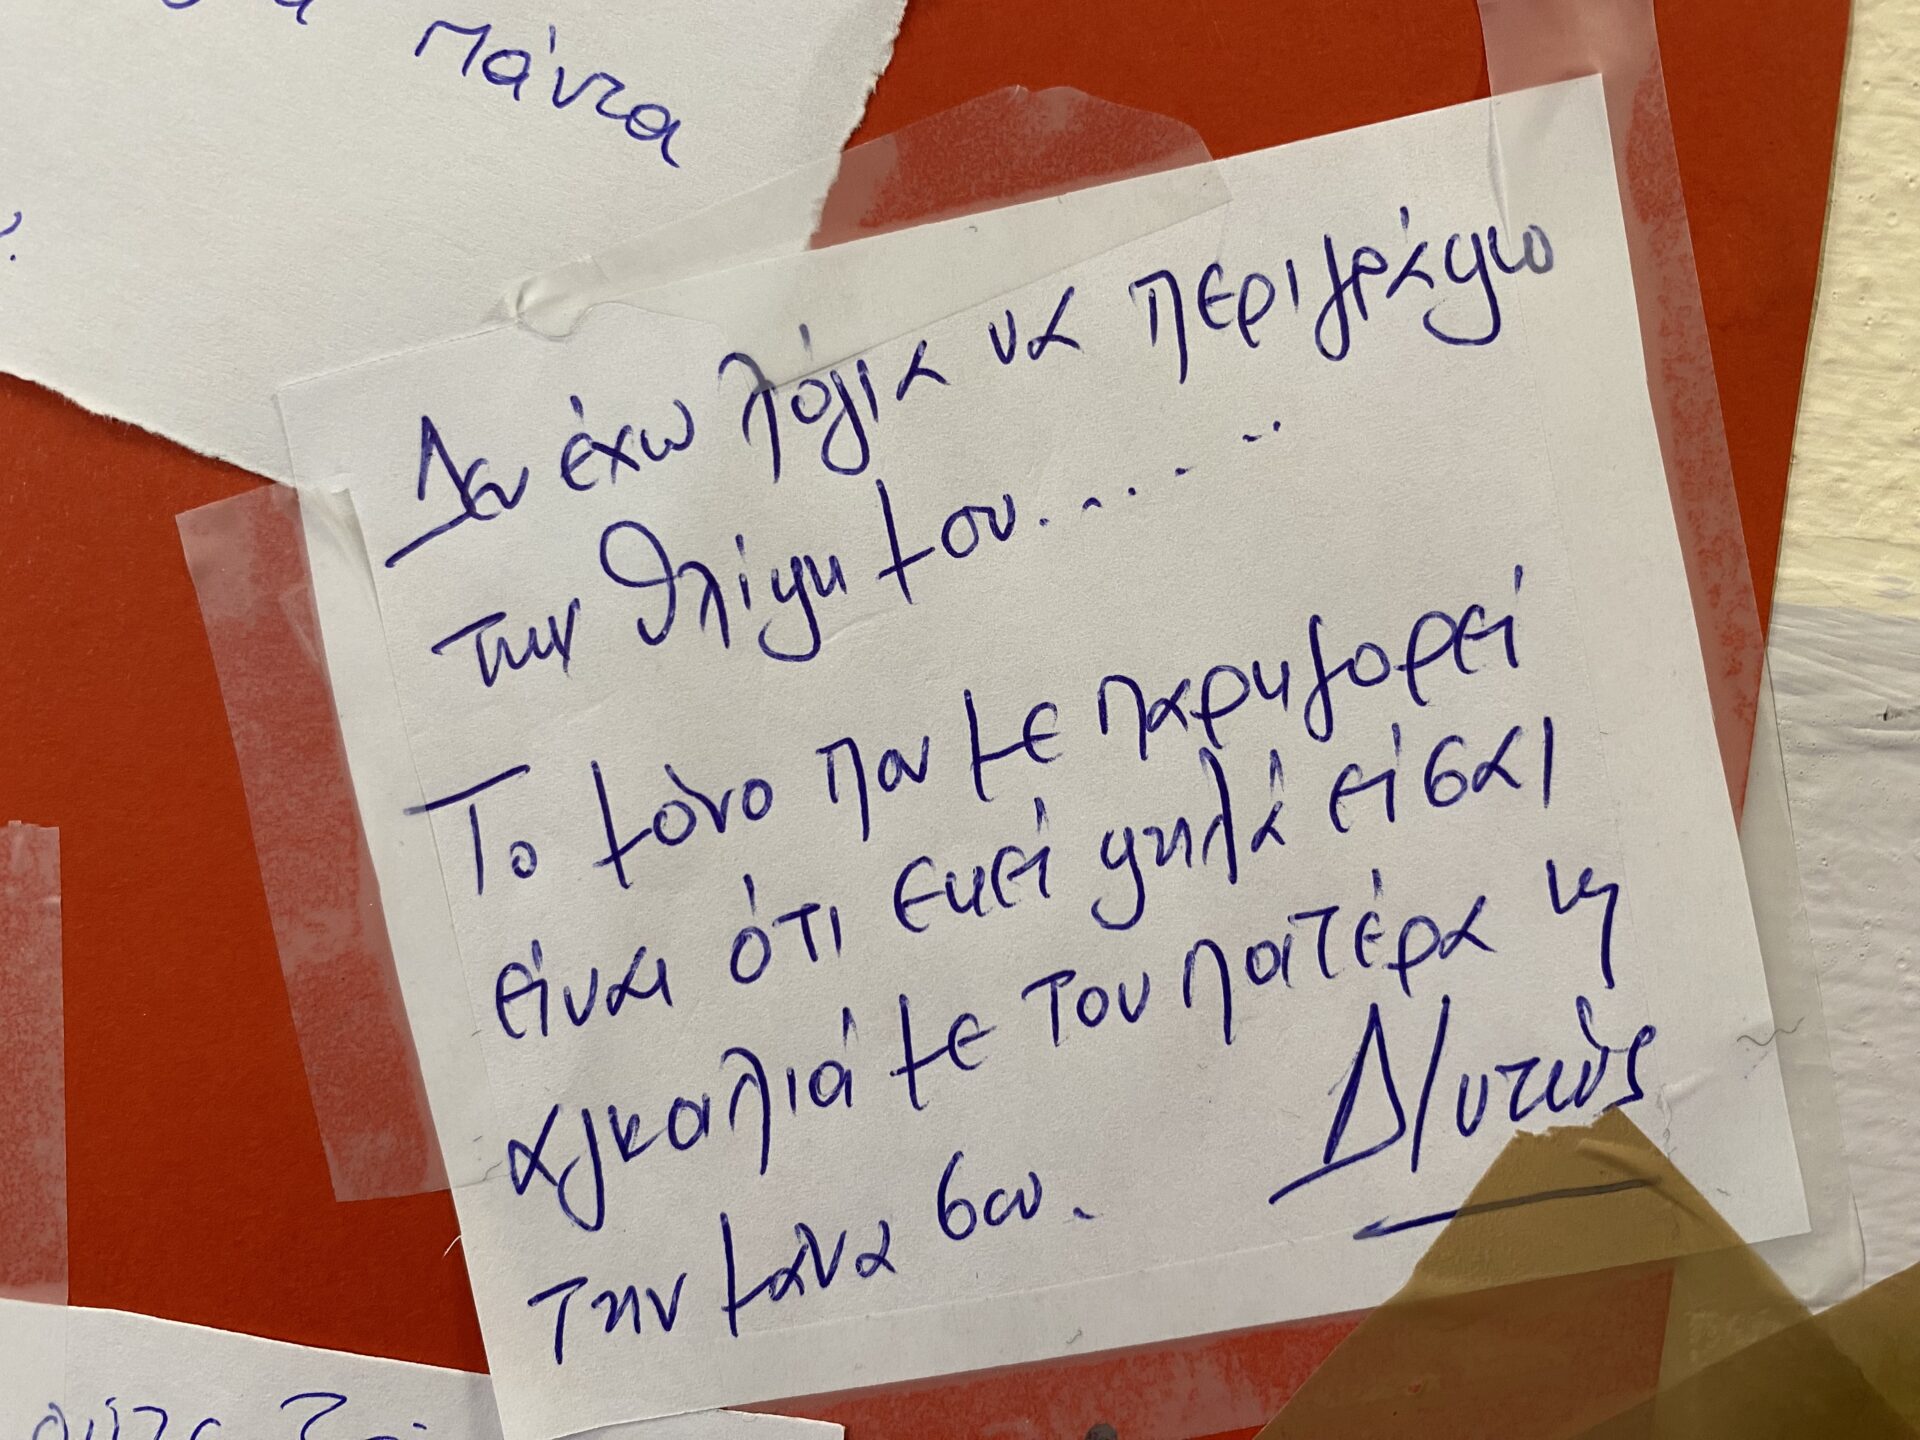 πάντα
Δεν έχω λόγια να περιγράψω
την θλίψη μου........
Το μόνο που με παρηγορεί
είναι ότι εκεί ψηλά είσαι
αγκαλιά με τον πατέρα κ
την μάνα σου.
Δ/ντης